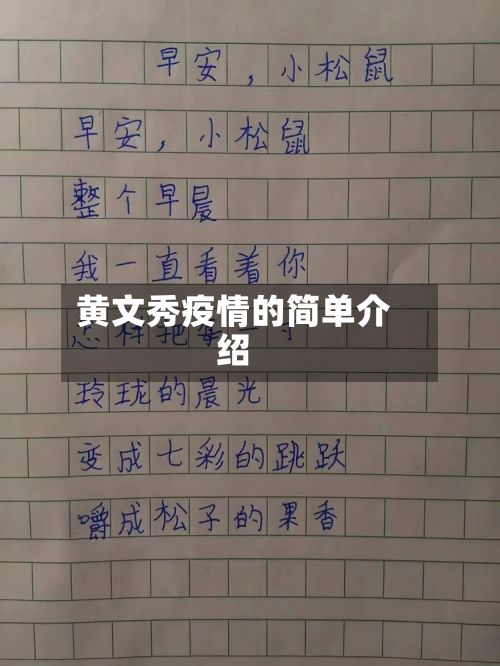 早安，小松鼠
早安，小松鼠
整个早晨
我一直看着你
黄文秀疫情的简单介
绍
玲珑的晨光
变成七彩的跳跃
嚼成松子的果香